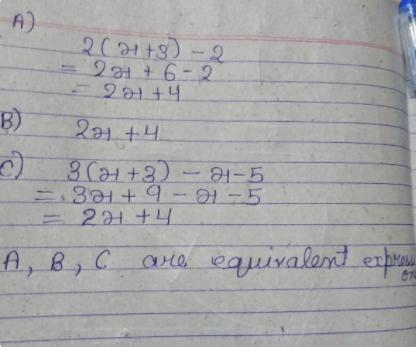 A)
2(x+3) - 2
= 2x + 6 - 2
= 2x + 4
B)
2x + 4
C)
3(x+3) - x - 5
= 3x + 9 - x - 5
= 2x + 4
A, B, C are equivalent